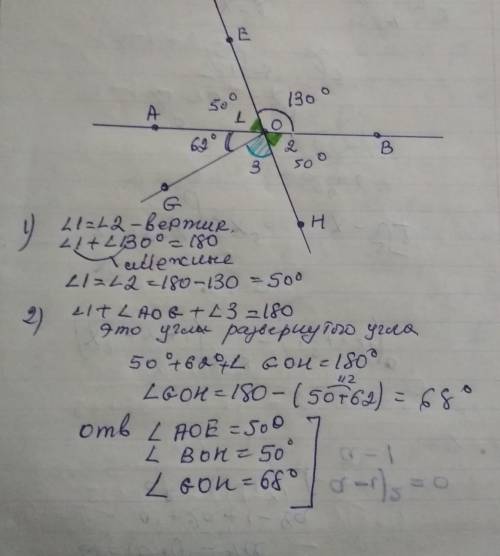 E
A 50° 1 130°
O
62° 2 B
3 50°
G
H
1) ∠1=∠2 - вертик.
∠1+∠130°=180
смежние
∠1=∠2=180-130=50°
2) ∠1+∠AOG+∠3=180
Это углы развернутого угла
50°+62°+∠GOH=180°
112
∠GOH=180-(50+62)=68°
отв ∠AOE=50°
∠BOH=50°
∠GOH=68°